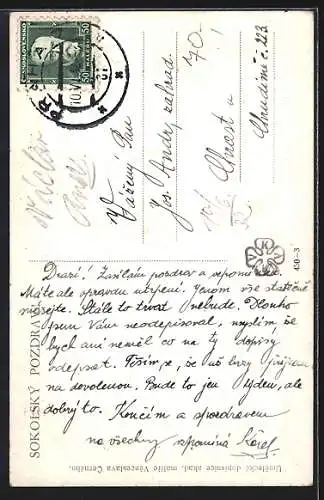 ČESKOSLOVENSKO
50 HALÉŘŮ 50
PRAHA
10.V
Vážený Pan
Jos. Andrj zahrad.
70!
Chrast u
Chrudimě č. 223.
V K
450-3
SOKOLSKÝ POZDRA
Drazí! Zasílám pozdrav a vzpomínku.
Máte ale opravdu utrpení. Jenom vše statečně
snášejte. Stále to trvat nebude. Dlouho
jsem Vám neodepisoval, myslím že
bych ani neměl co na ty dopisy
odepsat. Těším se, že už brzy přijedu
na dovolenou. Bude to jen týden, ale
dobrý to. Končím a spozdravem
na všechny vzpomíná Karel
Umělecké dopisnice akad. malíře Věnceslava Černého.